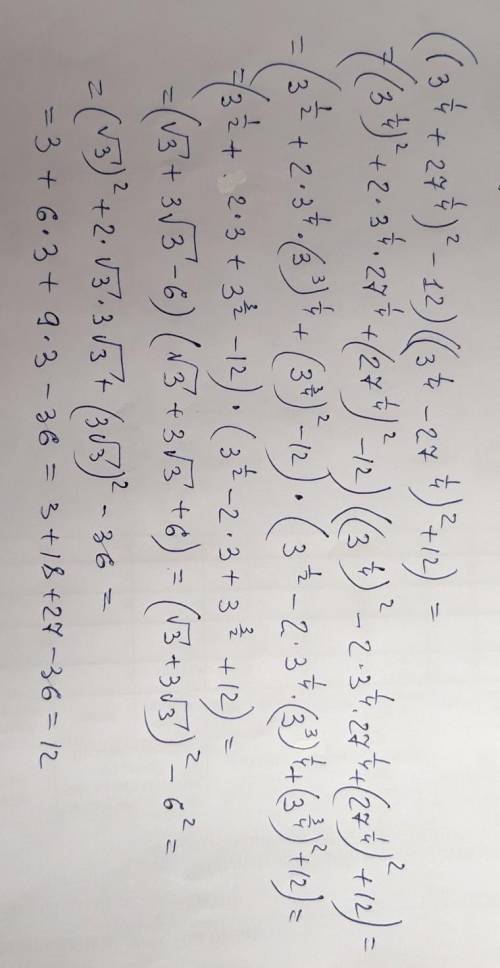 ((3^{1/4} + 27^{1/4})^2 - 12)((3^{1/4} - 27^{1/4})^2 + 12) =
= ((3^{1/4})^2 + 2·3^{1/4}·27^{1/4} + (27^{1/4})^2 - 12)((3^{1/4})^2 - 2·3^{1/4}·27^{1/4} + (27^{1/4})^2 + 12) =
= (3^{1/2} + 2·3^{1/4}·(3^3)^{1/4} + (3^{3/4})^2 - 12)·(3^{1/2} - 2·3^{1/4}·(3^3)^{1/4} + (3^{3/4})^2 + 12) =
= (3^{1/2} + 2·3 + 3^{3/2} - 12)·(3^{1/2} - 2·3 + 3^{3/2} + 12) =
= (√3 + 3√3 - 6)(√3 + 3√3 + 6) = (√3 + 3√3)^2 - 6^2 =
= (√3)^2 + 2·√3·3√3 + (3√3)^2 - 36 =
= 3 + 6·3 + 9·3 - 36 = 3 + 18 + 27 - 36 = 12